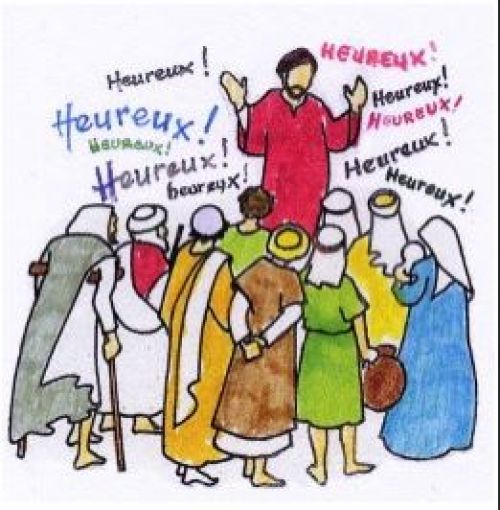 Heureux !
Heureux!
Heureux!
Heureux!
heureux!
HEUREUX!
Heureux!
HEUREUX!
Heureux!
Heureux!